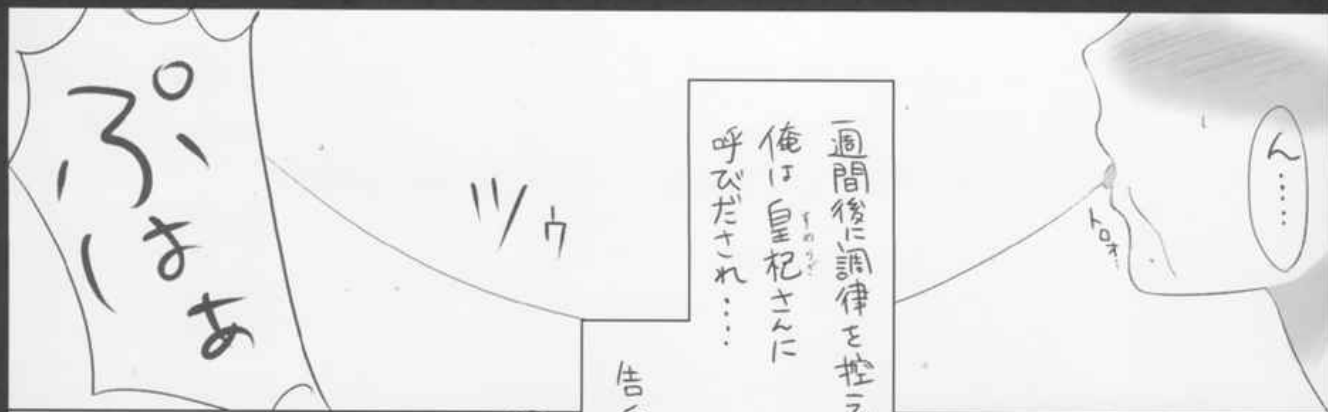 ん……
トロォ…
週間後に調律を控え
俺は皇杞さんに
すめらぎ
呼びだされ‥‥
告
ツゥ
ぷはぁ